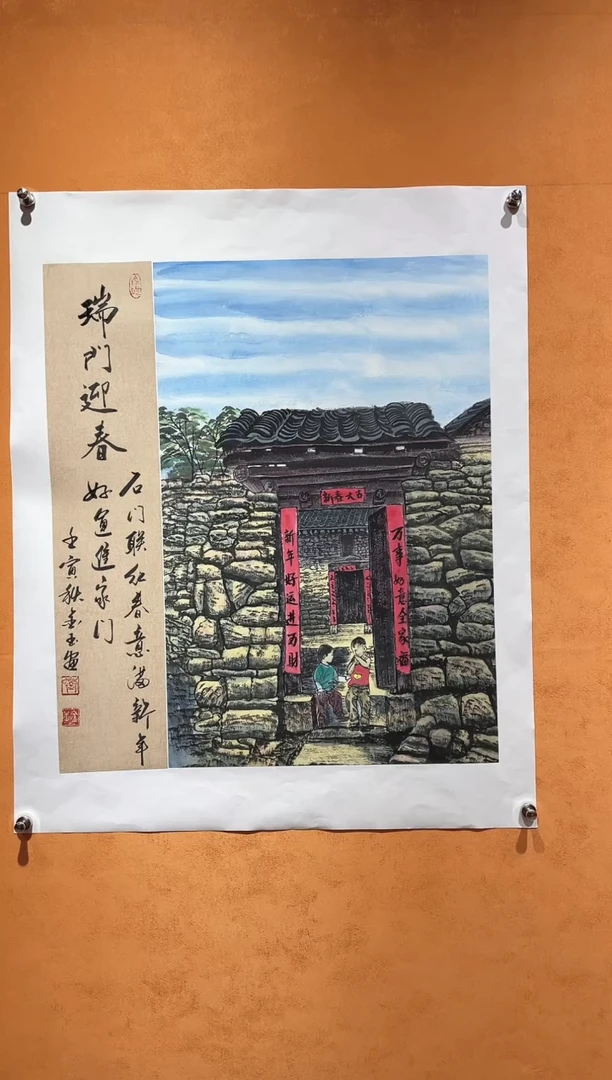 瑞門迎春
石门联红春意满新年
好運進家门
壬寅秋金玉画
新春大吉
万事如意全家福
新年好运进万财